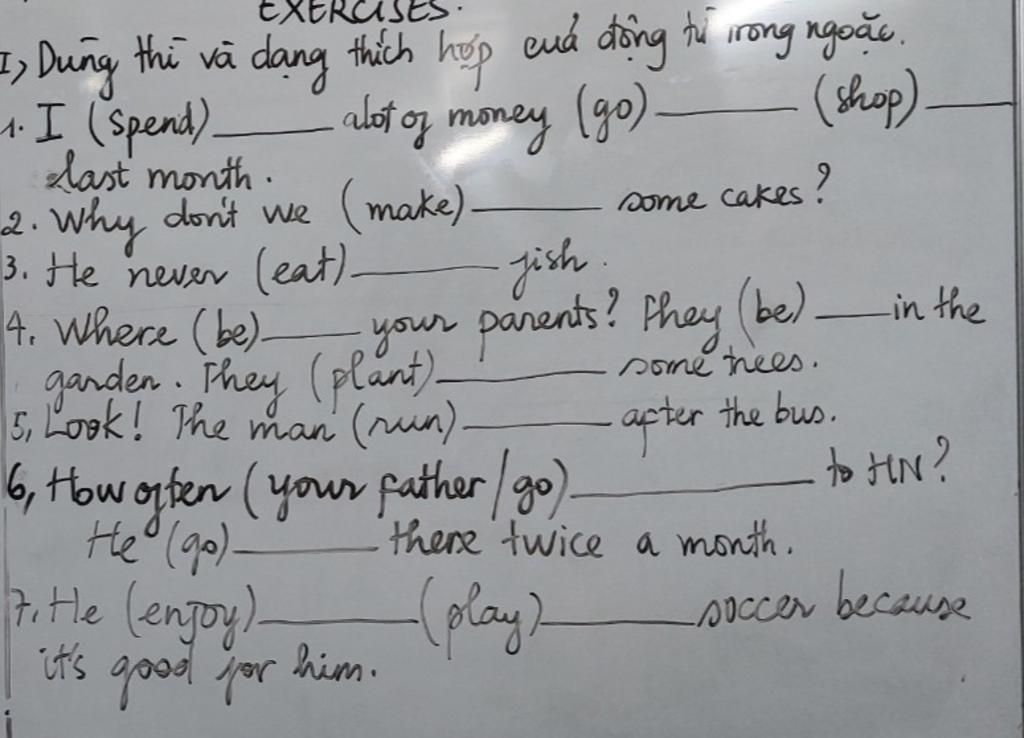 EXERCISES.
I, Dùng thì và dạng thích hợp cuả động từ trong ngoặc.
1. I (spend) ______ alot of money (go) ______ (shop) ______
last month.
2. Why don't we (make) ______ some cakes?
3. He never (eat) ______ fish.
4. Where (be) ______ your parents? They (be) ______ in the
garden. They (plant) ______ some trees.
5, Look! The man (run) ______ after the bus.
6, How often (your father/go) ______ to HN?
He (go) ______ there twice a month.
7, He (enjoy) ______ (play) ______ soccer because
it's good for him.